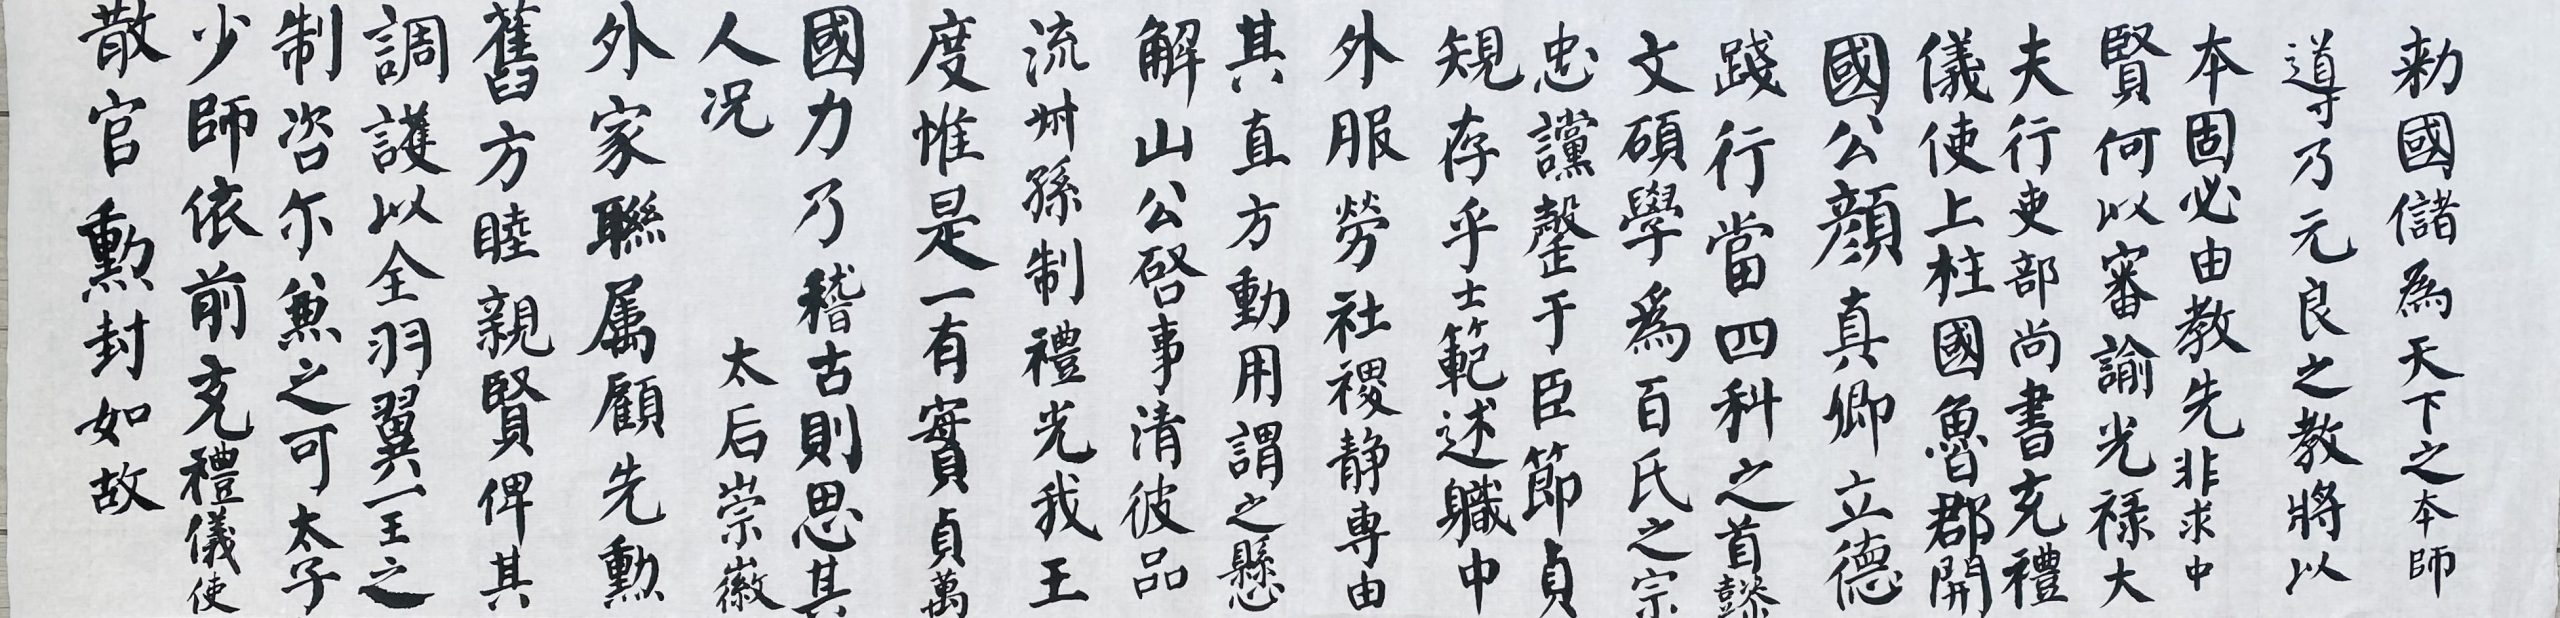 勑國儲為天下之本師
導乃元良之教將以
本固必由教先非求中
賢何以審諭光禄大
夫行吏部尚書充禮
儀使上柱國魯郡開
國公顔真卿立德
踐行當四科之首懿
文碩學為百氏之宗
忠讜罄于臣節貞
規存乎士範述職中
外服勞社稷静專由
其直方動用謂之懸
解山公啓事清彼品
流叔孫制禮光我王
度惟是一有實貞萬
國力乃稽古則思其
人况 太后崇徽
外家聯属顧先勲
舊方睦親賢俾其
調護以全羽翼一王之
制咨尔兼之可太子
少師依前充禮儀使
散官勲封如故